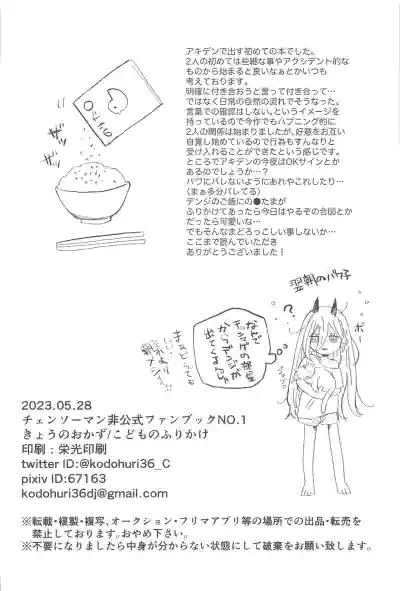 アキデンで出す初めての本でした。
2人の初めては些細な事やアクシデント的な
ものから始まると良いなぁとかいつも
考えております。
明確に付き合おうと言って付き合って…
ではなく日常の自然の流れでそうなった。
言葉での確認はしない。というイメージを
持っているので今作でもハプニング的に
2人の関係は始まりましたが、好意をお互い
自覚し始めているので行為もすんなりと
受け入れることができたという感じです。
ところでアキデンの今夜はOKサインとか
あるのでしょうか…?
パワにバレないようにあれやこれしたり…
(まぁ多分バレてる)
デンジのご飯にの●たまが
ふりかけてあったら今日はやるぞの合図とか
だったら可愛いな…
でもそんなまどろっこしい事しないか…
ここまで読んでいただき
ありがとうございました!
翌朝のパワ子
ボー
?
なぜ
チョンマゲの部屋
からデンジが
出てくるんじゃ
2023.05.28
チェンソーマン非公式ファンブックNO.1
きょうのおかず/こどものふりかけ
印刷:栄光印刷
twitter ID:@kodohuri36_C
pixiv ID:67163
kodohuri36dj@gmail.com
※転載・複製・複写、オークション・フリマアプリ等の場所での出品・転売を
禁止しております。おやめ下さい。
※不要になりましたら中身が分からない状態にして破棄をお願い致します。